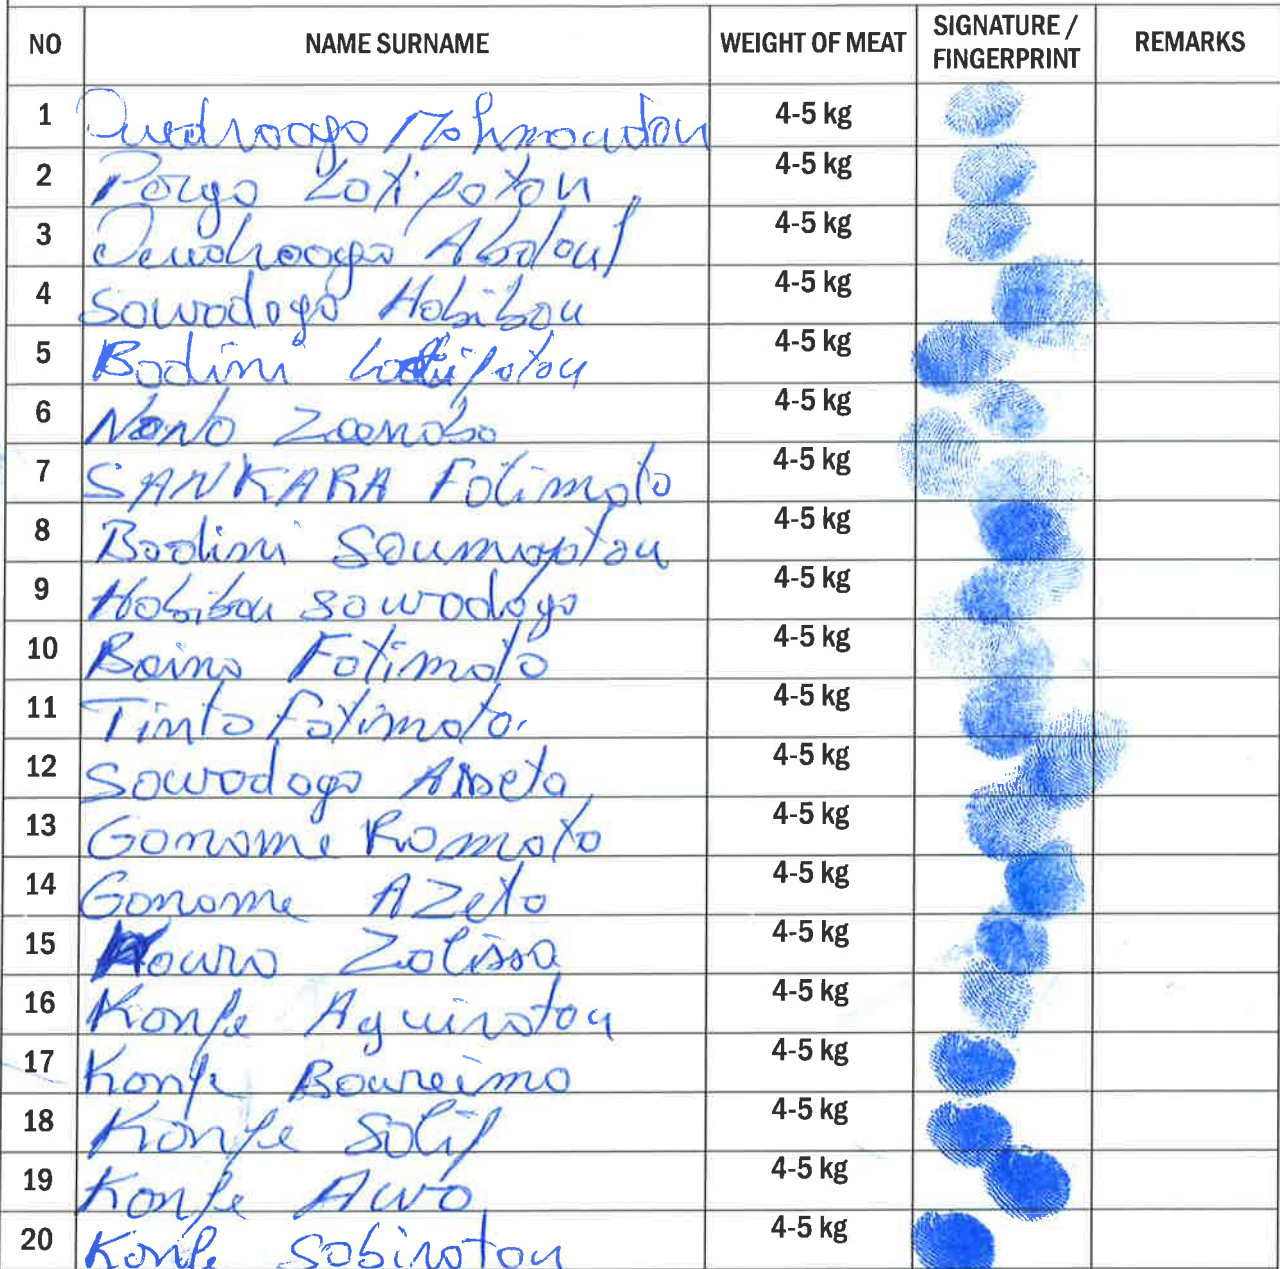 NO NAME SURNAME WEIGHT OF MEAT SIGNATURE / FINGERPRINT REMARKS
1 Ouedraogo Mahmoudou 4-5 kg
2 Porgo Latifatou 4-5 kg
3 Ouedraogo Abdoul 4-5 kg
4 Sawadogo Habibou 4-5 kg
5 Badini Latifatou 4-5 kg
6 Zaenabo 4-5 kg
7 SANKARA Fatimata 4-5 kg
8 Badini 4-5 kg
9 Habibou sawadogo 4-5 kg
10 Fatimata 4-5 kg
11 Tinto fatimata. 4-5 kg
12 Sawadogo Asseta 4-5 kg
13 Ganame Ramata 4-5 kg
14 Ganame AZeta 4-5 kg
15 Zalissa 4-5 kg
16 Konfe Aguiratou 4-5 kg
17 Konfe Boureima 4-5 kg
18 Konfe Salif 4-5 kg
19 Konfe Awa 4-5 kg
20 Konfe Sabiratou 4-5 kg